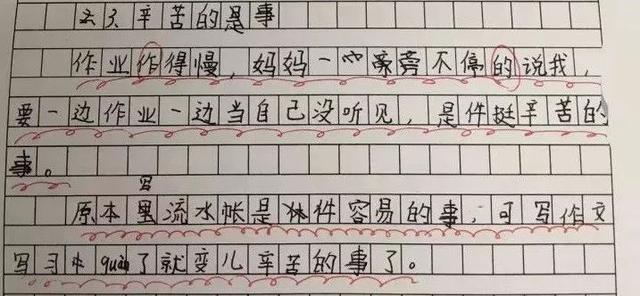 辛苦的是事
作业作得慢，妈妈一旁不停的说我，
要一边作业一边当自己没听见，是件挺辛苦的
事。
写
原本里流水帐是件容易的事，可写作文
写习quàn了就变儿辛苦的事了。